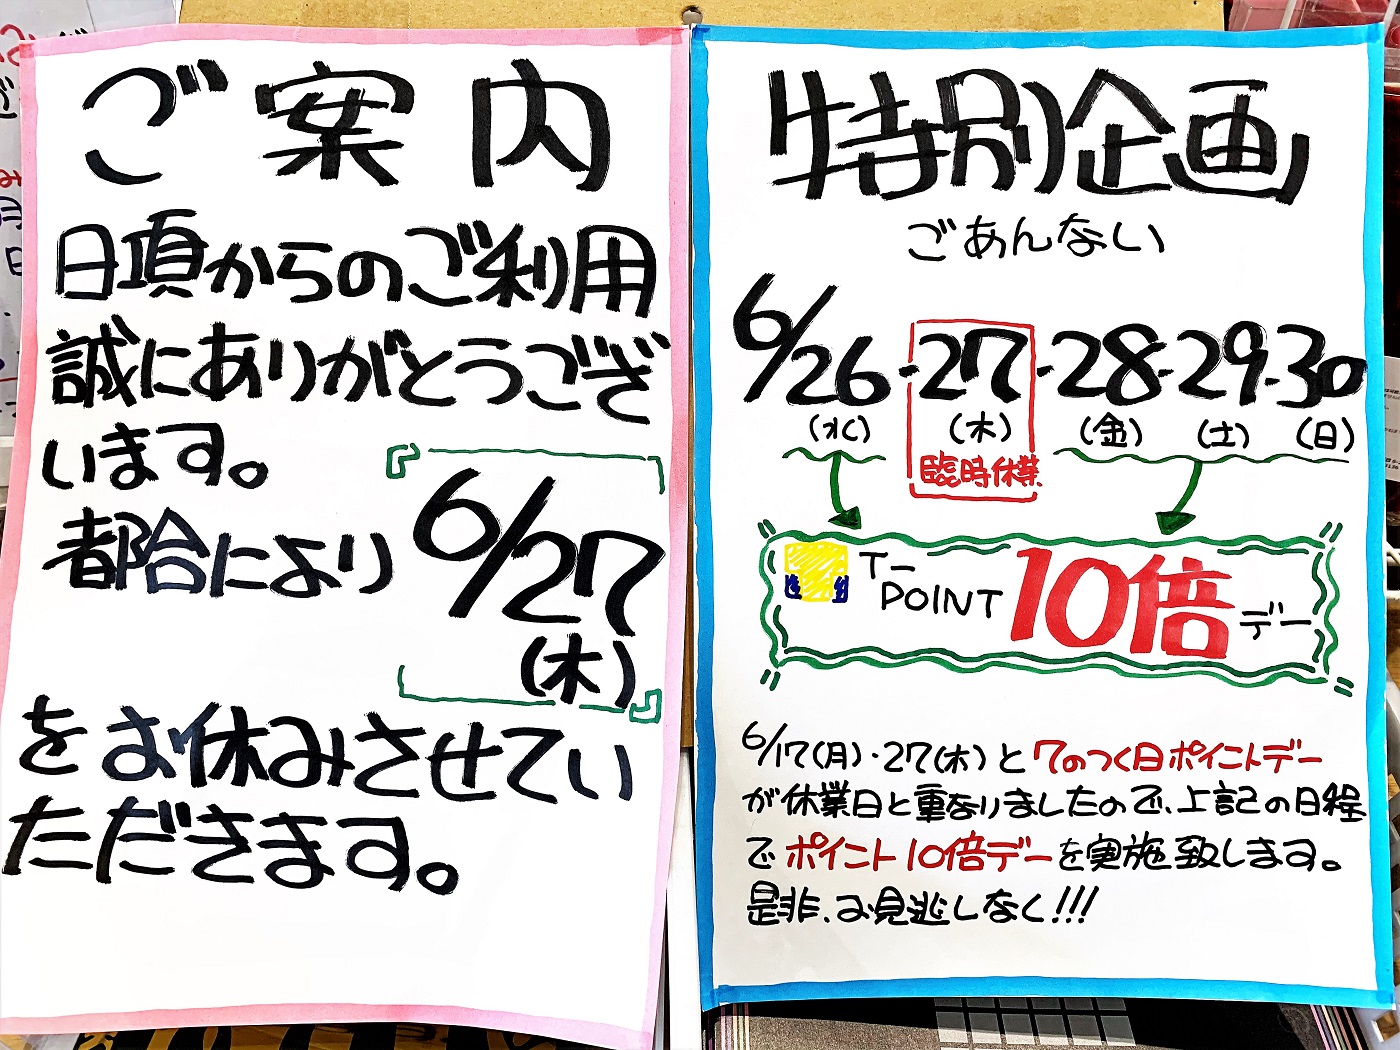 ご案内
日頃からのご利用
誠にありがとうござ
います。
都合により
『6/27
(木)』
をお休みさせてい
ただきます。
特別企画
ごあんない
6/26・27・28・29・30
(水) (木) (金) (土) (日)
臨時休業
T-POINT 10倍デー
6/17(月)・27(木)と7のつく日ポイントデー
が休業日と重なりましたので、上記の日程
でポイント10倍デーを実施致します。
是非、お見逃しなく!!!